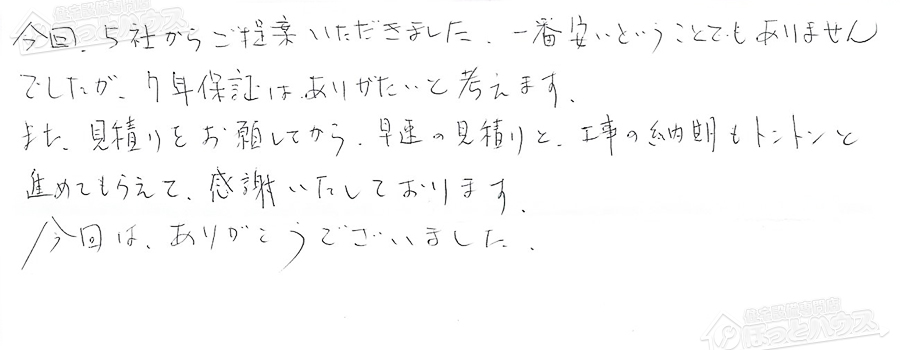 今回、5社からご提案いただきました。一番安いということでもありません
でしたが、7年保証はありがたいと考えます。
また、見積りをお願いしてから、早速の見積りと、工事の納期もトントンと
進めてもらえて、感謝いたしております。
今回は、ありがとうございました。
住宅設備専門店
ほっとハウス